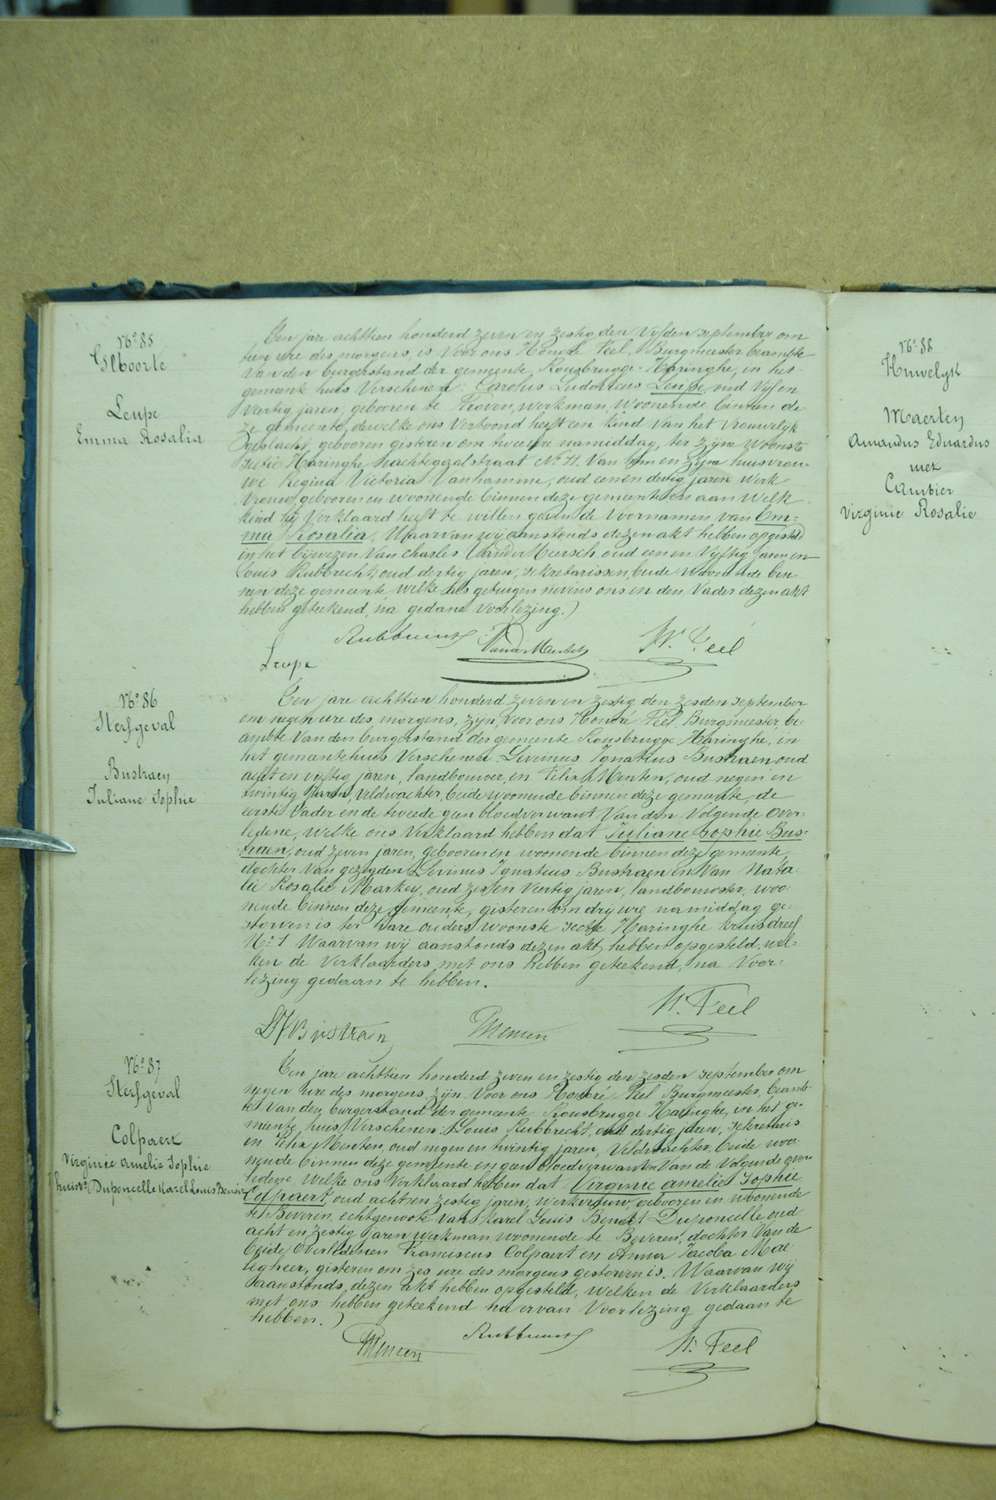 No 85
Gboorte
Leupe
Emma Rosalia
Een jare achttien honderd zeven en zestig den vijfden september om
tien ure des morgens is voor ons Honoré Feel, Burgmeester beambte
van den burgerstand der gemeente, Rousbrugge-Haringhe, in het
gemeente huis verschenen Carolus Ludovicus Leupe oud vijf en
veertig jaren, geboren te werkman, woonende binnen de
ze gemeente, dewelke ons vertoond heeft een kind van het vrouwelijk
geslacht, geboren gisteren om twee ure namiddag, ter zijne woonste
sectie Haringhe Nachtegaalstraat No 11. Van hem en zijne huisvrou
we Regina Victoria Vanhamme, oud een en dertig jaren werk
vrouw, geboren en woonende binnen deze gemeente en aan welk
kind hij verklaard heeft te willen geven de voornamen van Em-
ma Rosalia. Waarvan wij aanstonds dezen akt hebben opgesteld
in het bijwezen van Charles Vander Meersch oud een en vijftig jaren en
Louis Rubbrecht, oud dertig jaren, sekretarissen, beide woonende bin
nen deze gemeente, welke getuigen nevens ons en den vader dezen akt
hebben geteekend, na gedane voorlezing.)
Rubbrecht VanderMeersch H. Feel
Leupe
No 86
Sterfgeval
Bustraen
Juliane Sophie
Een jare achttien honderd zeven en zestig den zesden september
om negen ure des morgens, zijn voor ons Honoré Feel Burgmeester be
ambte van den burgerstand der gemeente Rousbrugge-Haringhe, in
het gemeentehuis verschenen Livinus Ignatius Bustraen oud
acht en vijftig jaren, landbouwer, en Felix Menten, oud negen en
twintig jaren, veldwachter, beide woonende binnen deze gemeente, de
eerste vader en de tweede geen bloedverwant van den volgende over
ledene, welke ons verklaard hebben dat Juliane Sophie Bus-
traen, oud zeven jaren, geboren en woonende binnen deze gemeente,
dochter van gezegden Livinus Ignatius Bustraen en van Nata
lie Rosalie Markey, oud zes en veertig jaren, landbouwster, woo
nende binnen deze gemeente, gisteren om drij ure namiddag ge
storven is ter hare ouders woonste sectie Haringhe
No 1 Waarvan wij aanstonds dezen akt hebben opgesteld, wel-
ken de verklaarders met ons hebben geteekend, na voor-
lezing gedaan te hebben.
LJ Bustraen Menten H. Feel
No 87
Sterfgeval
Colpaert
Virginie Amelie Sophie
huisv: Duponcelle Karel Louis Benoit
Een jare achttien honderd zeven en zestig den zesden september om
negen ure des morgens zijn voor ons Honoré Feel Burgmeester, beamb-
te van den burgerstand der gemeente Rousbrugge-Haringhe, in het ge-
meente huis verschenen Louis Rubbrecht, oud dertig jaren, sekretaris
en Felix Menten, oud negen en twintig jaren, veldwachter beide woo
nende binnen deze gemeente en geen bloedverwanten van de volgende over
ledene, welke ons verklaard hebben dat Virginie Amelie Sophie
Colpaert, oud achtien zestig jaren, werkvrouw, geboren en woonende
te Beveren, echtgenoote van Karel Louis Benoit Duponcelle oud
acht en zestig jaren werkman woonende te Beveren, dochter van de
beide overledenen Franciscus Colpaert en Anna Jacoba
gisteren om zes ure des morgens gestorven is. Waarvan wij
aanstonds, dezen akt hebben opgesteld, welken de verklaarders
met ons hebben geteekend na ervan voorlezing gedaan te
hebben.)
Menten Rubbrecht H. Feel
No 88
Huwelijk
Maerten
Amandus Eduardus
met
Cambier
Virginie Rosalie